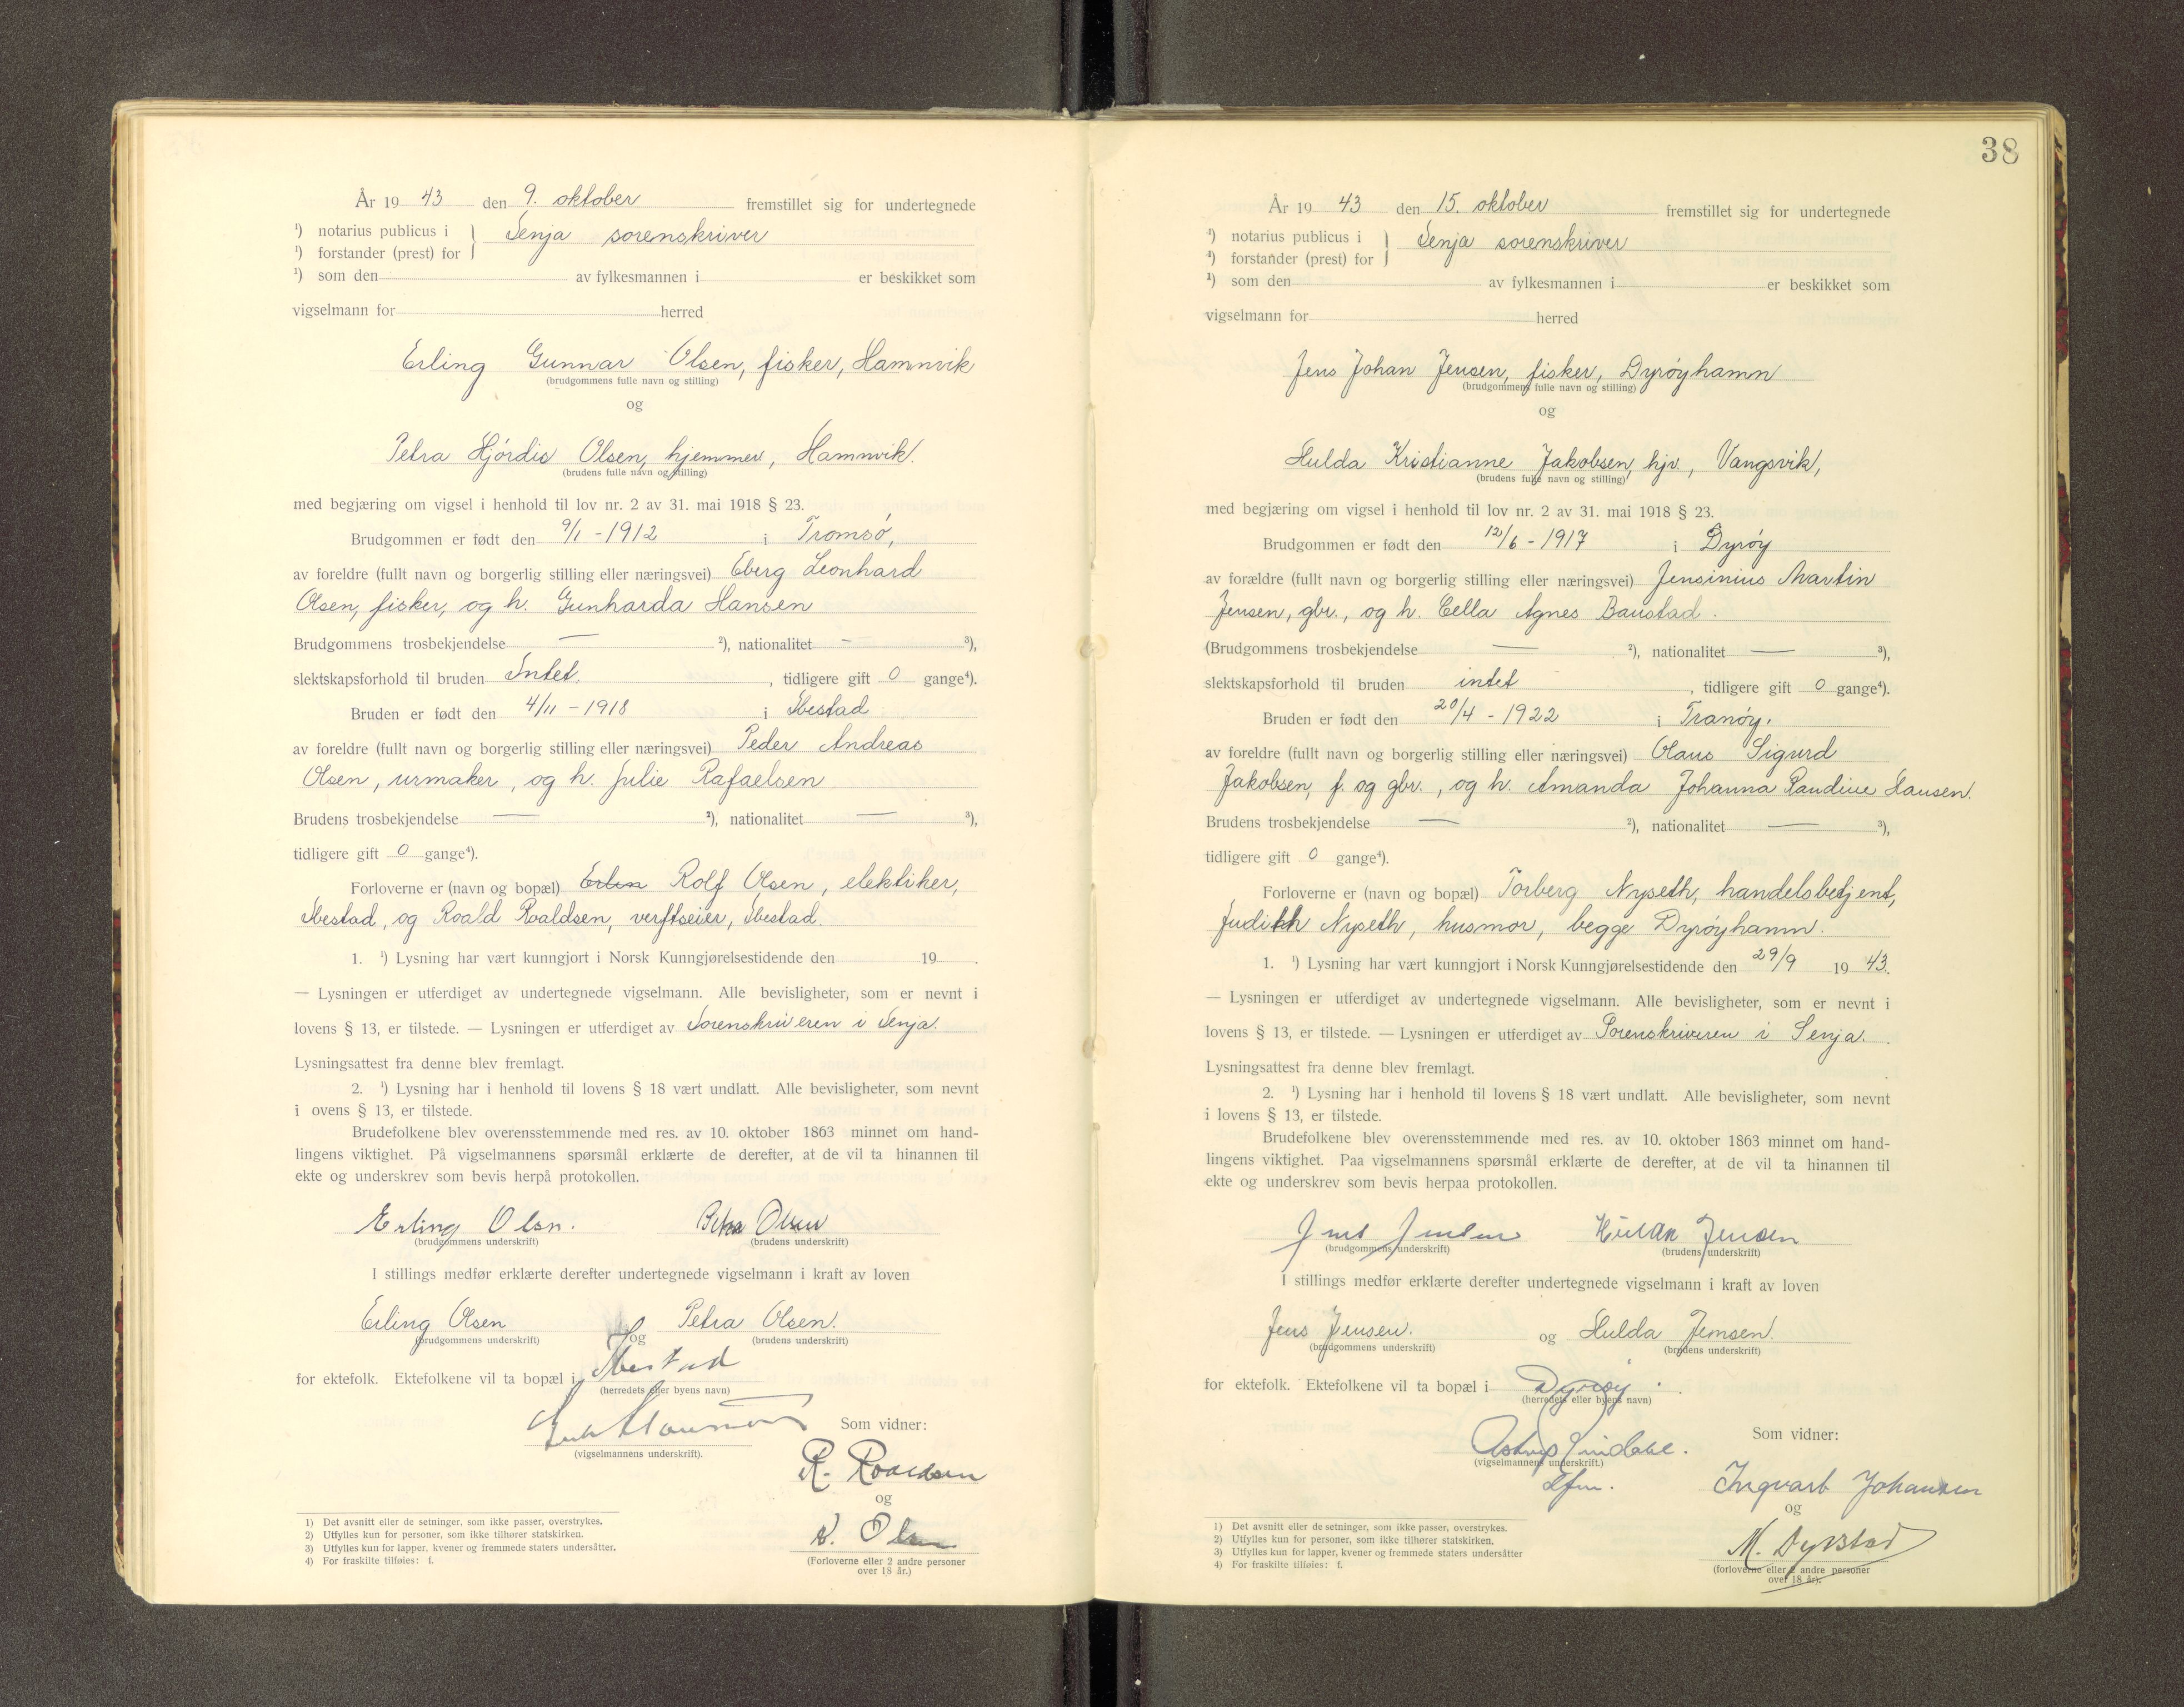 År 19 43 den 9. oktober fremstillet sig for undertegnede
¹) notarius publicus i } Senja sorenskriver
¹) forstander (prest) for
¹) som den av fylkesmannen i er beskikket som
vigselmann for herred
Erling Gunnar Olsen, fisker, Hamnvik
(brudgommens fulle navn og stilling)
og
Petra Hjördis Olsen, hjemmev, Hamnvik.
(brudens fulle navn og stilling)
med begjæring om vigsel i henhold til lov nr. 2 av 31. mai 1918 § 23.
Brudgommen er født den 9/1 - 1912 i Tromsö,
av foreldre (fullt navn og borgerlig stilling eller næringsvei) Eberg Leonhard
Olsen, fisker, og h. Gunharda Hansen
Brudgommens trosbekjendelse — ²), nationalitet — ³),
slektskapsforhold til bruden Intet. , tidligere gift 0 gange⁴).
Bruden er født den 4/11 - 1918 i Ibestad
av foreldre (fullt navn og borgerlig stilling eller næringsvei) Peder Andreas
Olsen, urmaker, og h. Julie Rafaelsen
Brudens trosbekjendelse — ²), nationalitet — ³),
tidligere gift 0 gange⁴).
Forloverne er (navn og bopæl) Erlin Rolf Olsen, elektiker,
Ibestad, og Roald Roaldsen, verftseier, Ibestad.
1. ¹) Lysning har vært kunngjort i Norsk Kunngjørelsestidende den 19 .
— Lysningen er utferdiget av undertegnede vigselmann. Alle bevisligheter, som er nevnt i
lovens § 13, er tilstede. — Lysningen er utferdiget av Sorenskriveren i Senja.
Lysningsattest fra denne blev fremlagt.
2. ¹) Lysning har i henhold til lovens § 18 vært undlatt. Alle bevisligheter, som nevnt
i ovens § 13, er tilstede.
Brudefolkene blev overensstemmende med res. av 10. oktober 1863 minnet om hand-
lingens viktighet. På vigselmannens spørsmål erklærte de derefter, at de vil ta hinannen til
ekte og underskrev som bevis herpå protokollen.
Erling Olsn. Petra Olsen
(brudgommens underskrift) (brudens underskrift)
I stillings medfør erklærte derefter undertegnede vigselmann i kraft av loven
Erling Olsen og Petra Olsen.
(brudgommens underskrift) (brudens underskrift)
for ektefolk. Ektefolkene vil ta bopæl i Ibestad
(herredets eller byens navn)
(vigselmannens underskrift).
Som vidner:
R. Roaldsen
og
R. Olsen
(Forloverne eller 2 andre personer
over 18 år.)
1) Det avsnitt eller de setninger, som ikke passer, overstrykes.
2) Utfylles kun for personer, som ikke tilhører statskirken.
3) Utfylles kun for lapper, kvener og fremmede staters undersåtter.
4) For fraskilte tilføies: f.
38
År 19 43 den 15. oktober fremstillet sig for undertegnede
¹) notarius publicus i } Senja sorenskriver
¹) forstander (prest) for
¹) som den av fylkesmannen i er beskikket som
vigselmann for herred
Jens Johan Jensen, fisker, Dyröyhamn
(brudgommens fulle navn og stilling)
og
Hulda Kristianne Jakobsen, hjv., Vangsvik,
(brudens fulle navn og stilling)
med begjæring om vigsel i henhold til lov nr. 2 av 31. mai 1918 § 23.
Brudgommen er født den 12/6 - 1917 i Dyröy
av forældre (fullt navn og borgerlig stilling eller næringsvei) Jensinius Martin
Jensen, gbr., og h. Cella Agnes Baustad.
(Brudgommens trosbekjendelse — ²), nationalitet — ³),
slektskapsforhold til bruden intet , tidligere gift 0 gange⁴).
Bruden er født den 20/4 - 1922 i Tranöy.
av foreldre (fullt navn og borgerlig stilling eller næringsvei) Olaus Sigurd
Jakobsen, f. og gbr., og h. Amanda Johanna Raudine Hansen.
Brudens trosbekjendelse — ²), nationalitet — ³),
tidligere gift 0 gange⁴).
Forloverne er (navn og bopæl) Torberg Nyseth, handelsbetjent,
Judith Nyseth, husmor, begge Dyröyhamn.
1. ¹) Lysning har vært kunngjort i Norsk Kunngjørelsestidende den 29/9 19 43.
— Lysningen er utferdiget av undertegnede vigselmann. Alle bevisligheter, som er nevnt i
lovens § 13, er tilstede. — Lysningen er utferdiget av Sorenskriveren i Senja.
Lysningsattest fra denne blev fremlagt.
2. ¹) Lysning har i henhold til lovens § 18 vært undlatt. Alle bevisligheter, som nevnt
i lovens § 13, er tilstede.
Brudefolkene blev overensstemmende med res. av 10. oktober 1863 minnet om hand-
lingens viktighet. Paa vigselmannens spørsmål erklærte de derefter, at de vil ta hinannen til
ekte og underskrev som bevis herpaa protokollen.
Jens Jensen Hulda Jensen
(brudgommens underskrift) (brudens underskrift)
I stillings medfør erklærte derefter undertegnede vigselmann i kraft av loven
Jens Jensen. og Hulda Jensen.
(brudgommens underskrift) (brudens underskrift)
for ektefolk. Ektefolkene vil ta bopæl i Dyröy.
(herredets eller byens navn)
(vigselmannens underskrift.)
Som vidner:
Ingvart Johansen
og
M. Dyrstad
(forloverne eller 2 andre personer
over 18 år).
1) Det avsnitt eller de setninger, som ikke passer, overstrykes.
2) Utfylles kun for personer, som ikke tilhører statskirken.
3) Utfylles kun for lapper, kvener og fremmede staters undersåtter
4) For fraskilte tilføies: f.